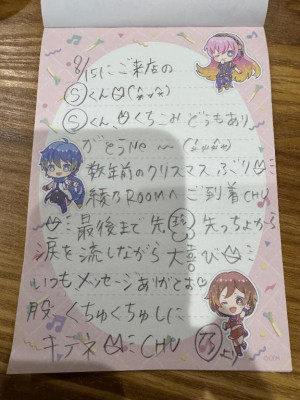 8/15にご来店の
Ⓢくん♡
Ⓢくん♡くちこみ どうもあり
がとうNe〜
数年前のクリスマスぶり♡
綾乃ROOMへ ご到着CHU
♡最後まで先 先っちょから
涙を流しながら大喜び♡
いつもメッセージありがとお♡
股 くちゅくちゅしに
キテネ♡CHU より